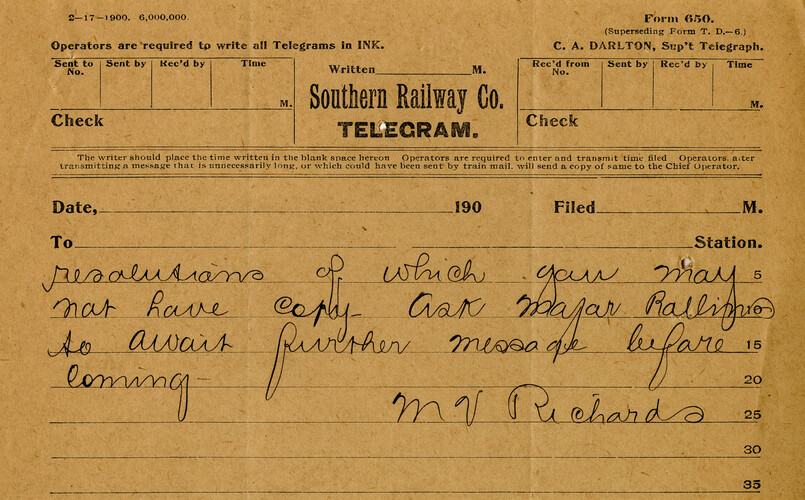 2-17-1900. 6,000,000.
Form 650.
(Superseding Form T. D.-6.)
Operators are required to write all Telegrams in INK.
C. A. DARLTON, Sup't Telegraph.
Sent to No. Sent by Rec'd by Time M.
Written M.
Rec'd from No. Sent by Rec'd by Time M.
Southern Railway Co.
Check
TELEGRAM.
Check
The writer should place the time written in the blank space hereon Operators are required to enter and transmit time filed Operators, after
transmitting a message that is unnecessarily long, or which could have been sent by train mail, will send a copy of same to the Chief Operator.
Date, 190 Filed M.
To Station.
resolutions of which you may 5
not have copy- Ask Major 10
to await further message before 15
coming- 20
M V Richards 25
30
35